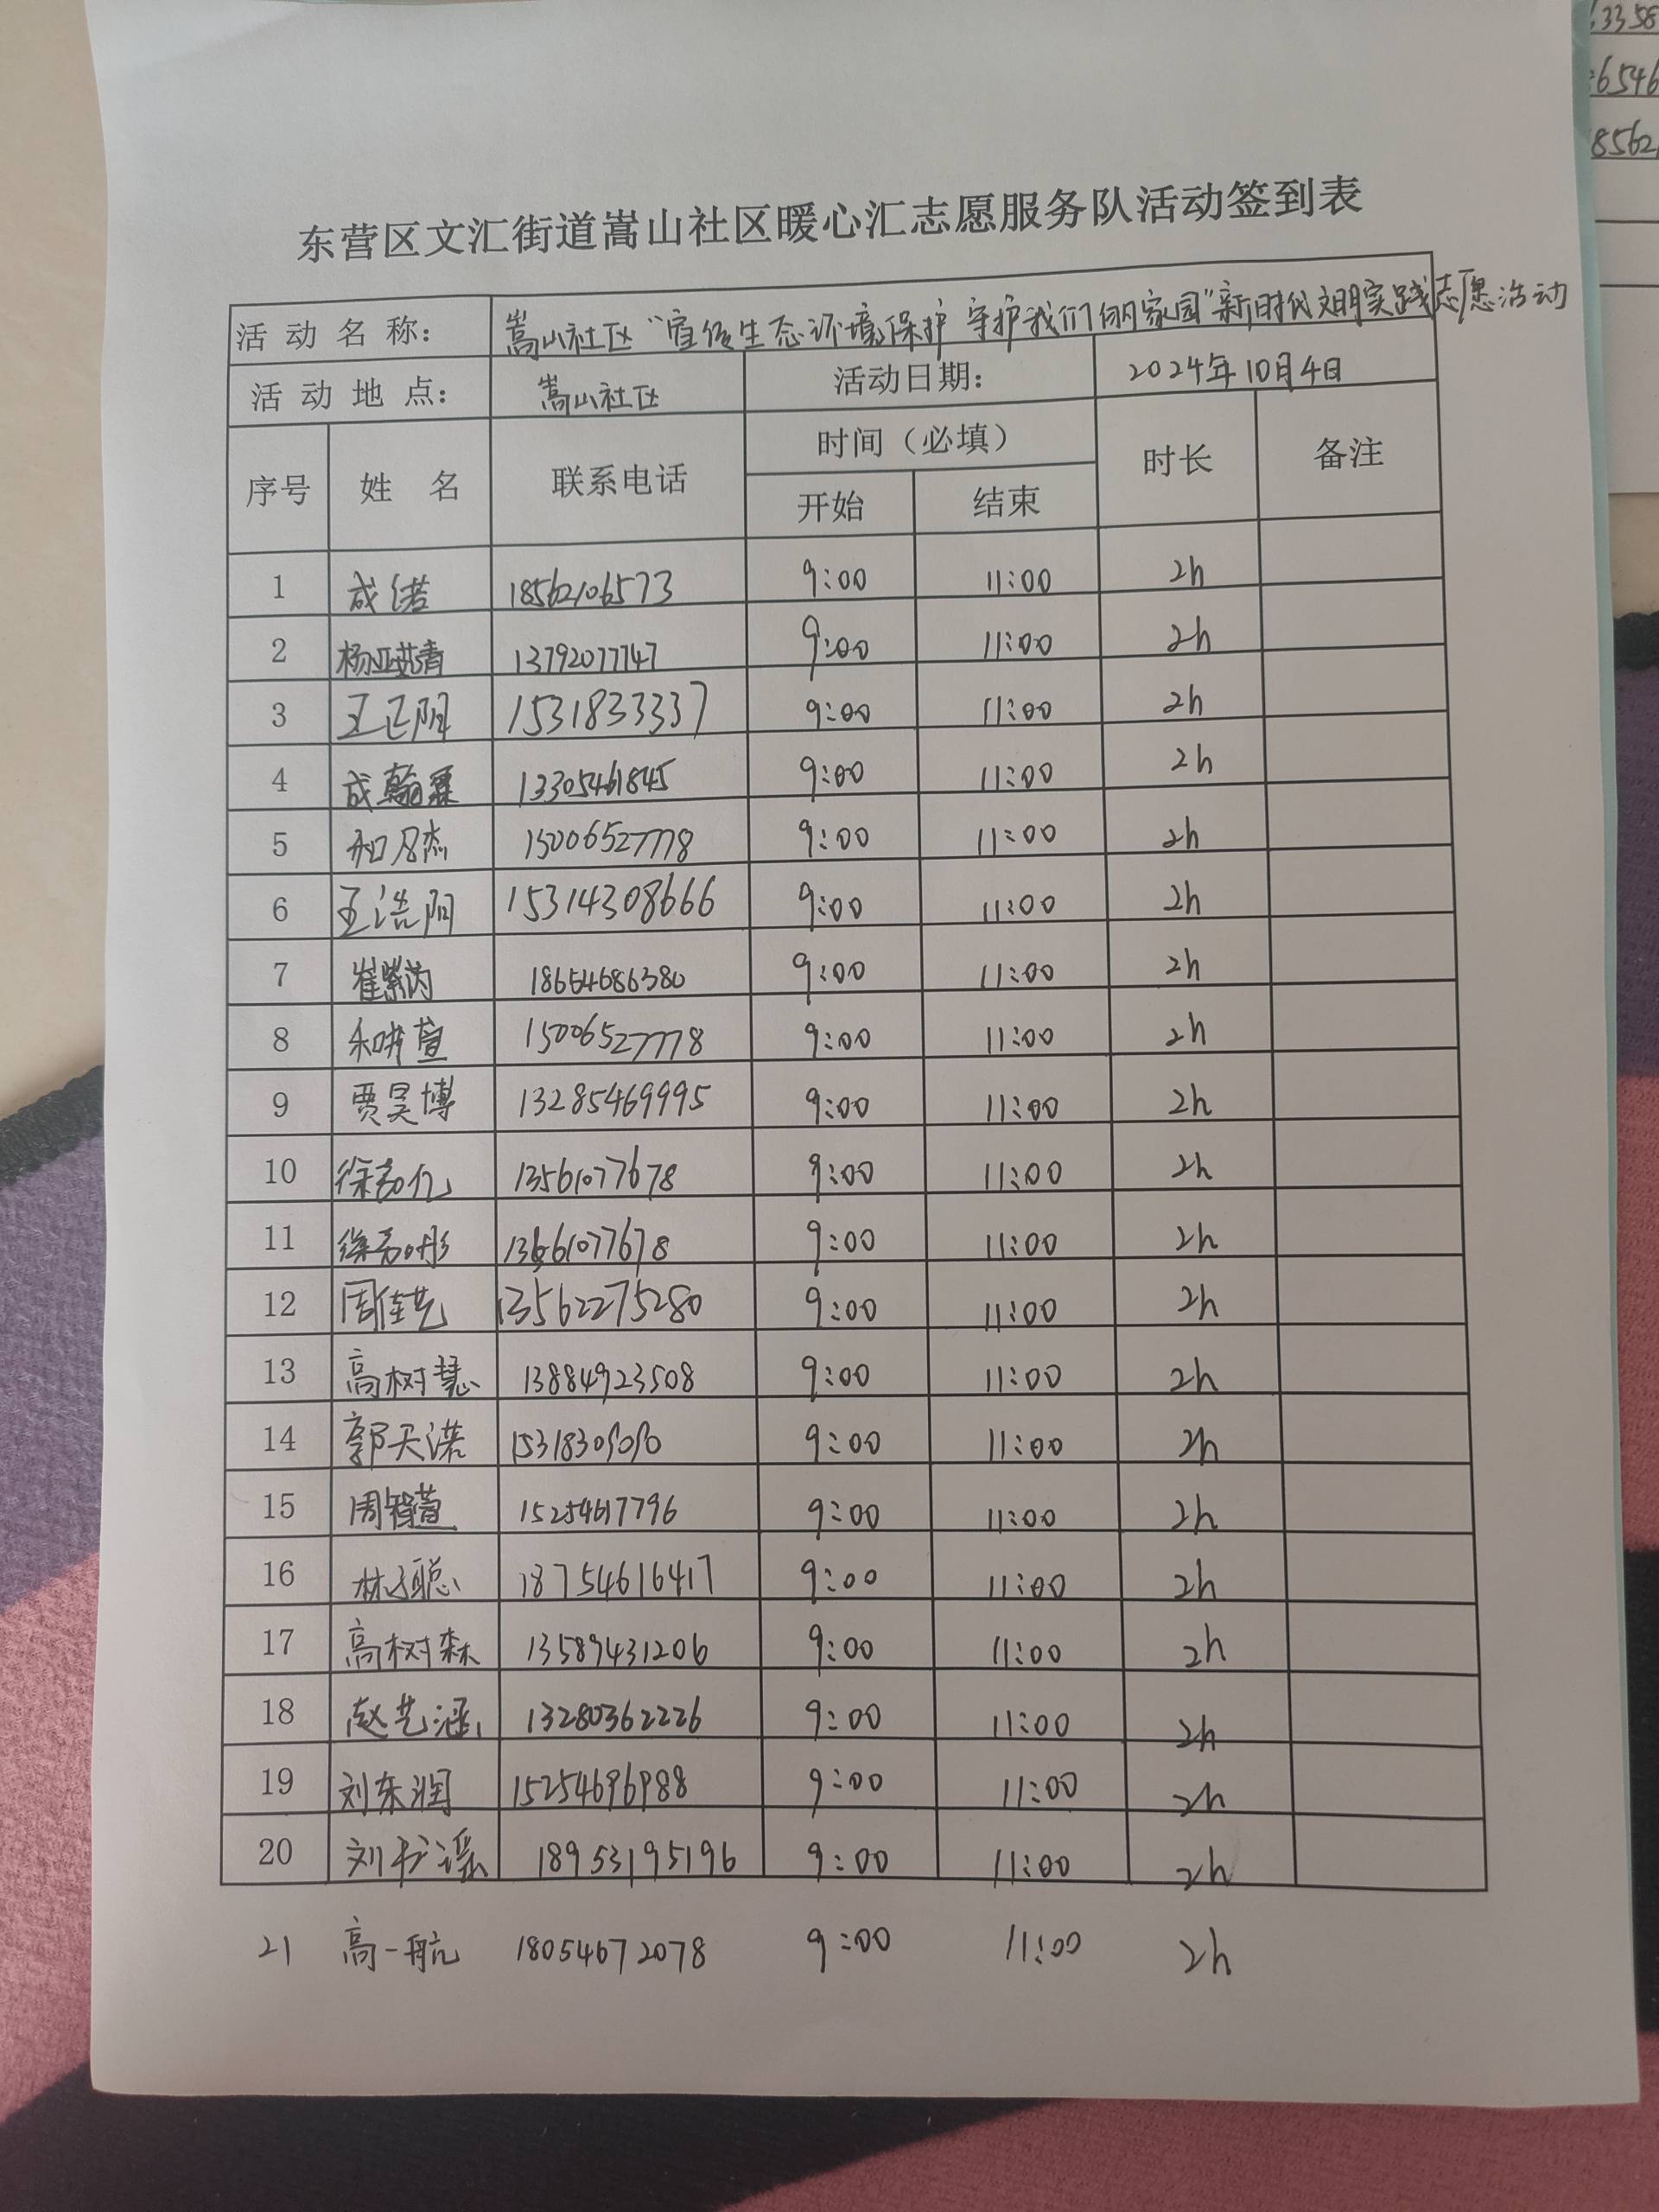 3358
6546
8562
东营区文汇街道嵩山社区暖心汇志愿服务队活动签到表
活动名称： 嵩山社区“宣传生态环境保护 守护我们的家园”新时代文明实践志愿活动
活动地点： 嵩山社区 活动日期： 2024年10月4日
序号 姓名 联系电话 时间（必填） 时长 备注
开始 结束
1 成诺 18562106573 9:00 11:00 2h
2 杨亚茹清 13792077747 9:00 11:00 2h
3 王正阳 1531833337 9:00 11:00 2h
4 成翰霖 13305461845 9:00 11:00 2h
5 15006527778 9:00 11:00 2h
6 王浩阳 15314308666 9:00 11:00 2h
7 崔紫芮 18654686380 9:00 11:00 2h
8 15006527778 9:00 11:00 2h
9 贾昊博 13285469995 9:00 11:00 2h
10 13561077678 9:00 11:00 2h
11 9:00 11:00 2h
12 周佳艺 13562275280 9:00 11:00 2h
13 高树慧 13884923508 9:00 11:00 2h
14 郭天诺 9:00 11:00 2h
15 周智萱 15254617796 9:00 11:00 2h
16 林子聪 18754616417 9:00 11:00 2h
17 高树森 13589431206 9:00 11:00 2h
18 赵艺涵 13280362226 9:00 11:00 2h
19 刘东润 15254696988 9:00 11:00 2h
20 刘书谣 18953195196 9:00 11:00 2h
21 高一航 18054672078 9:00 11:00 2h